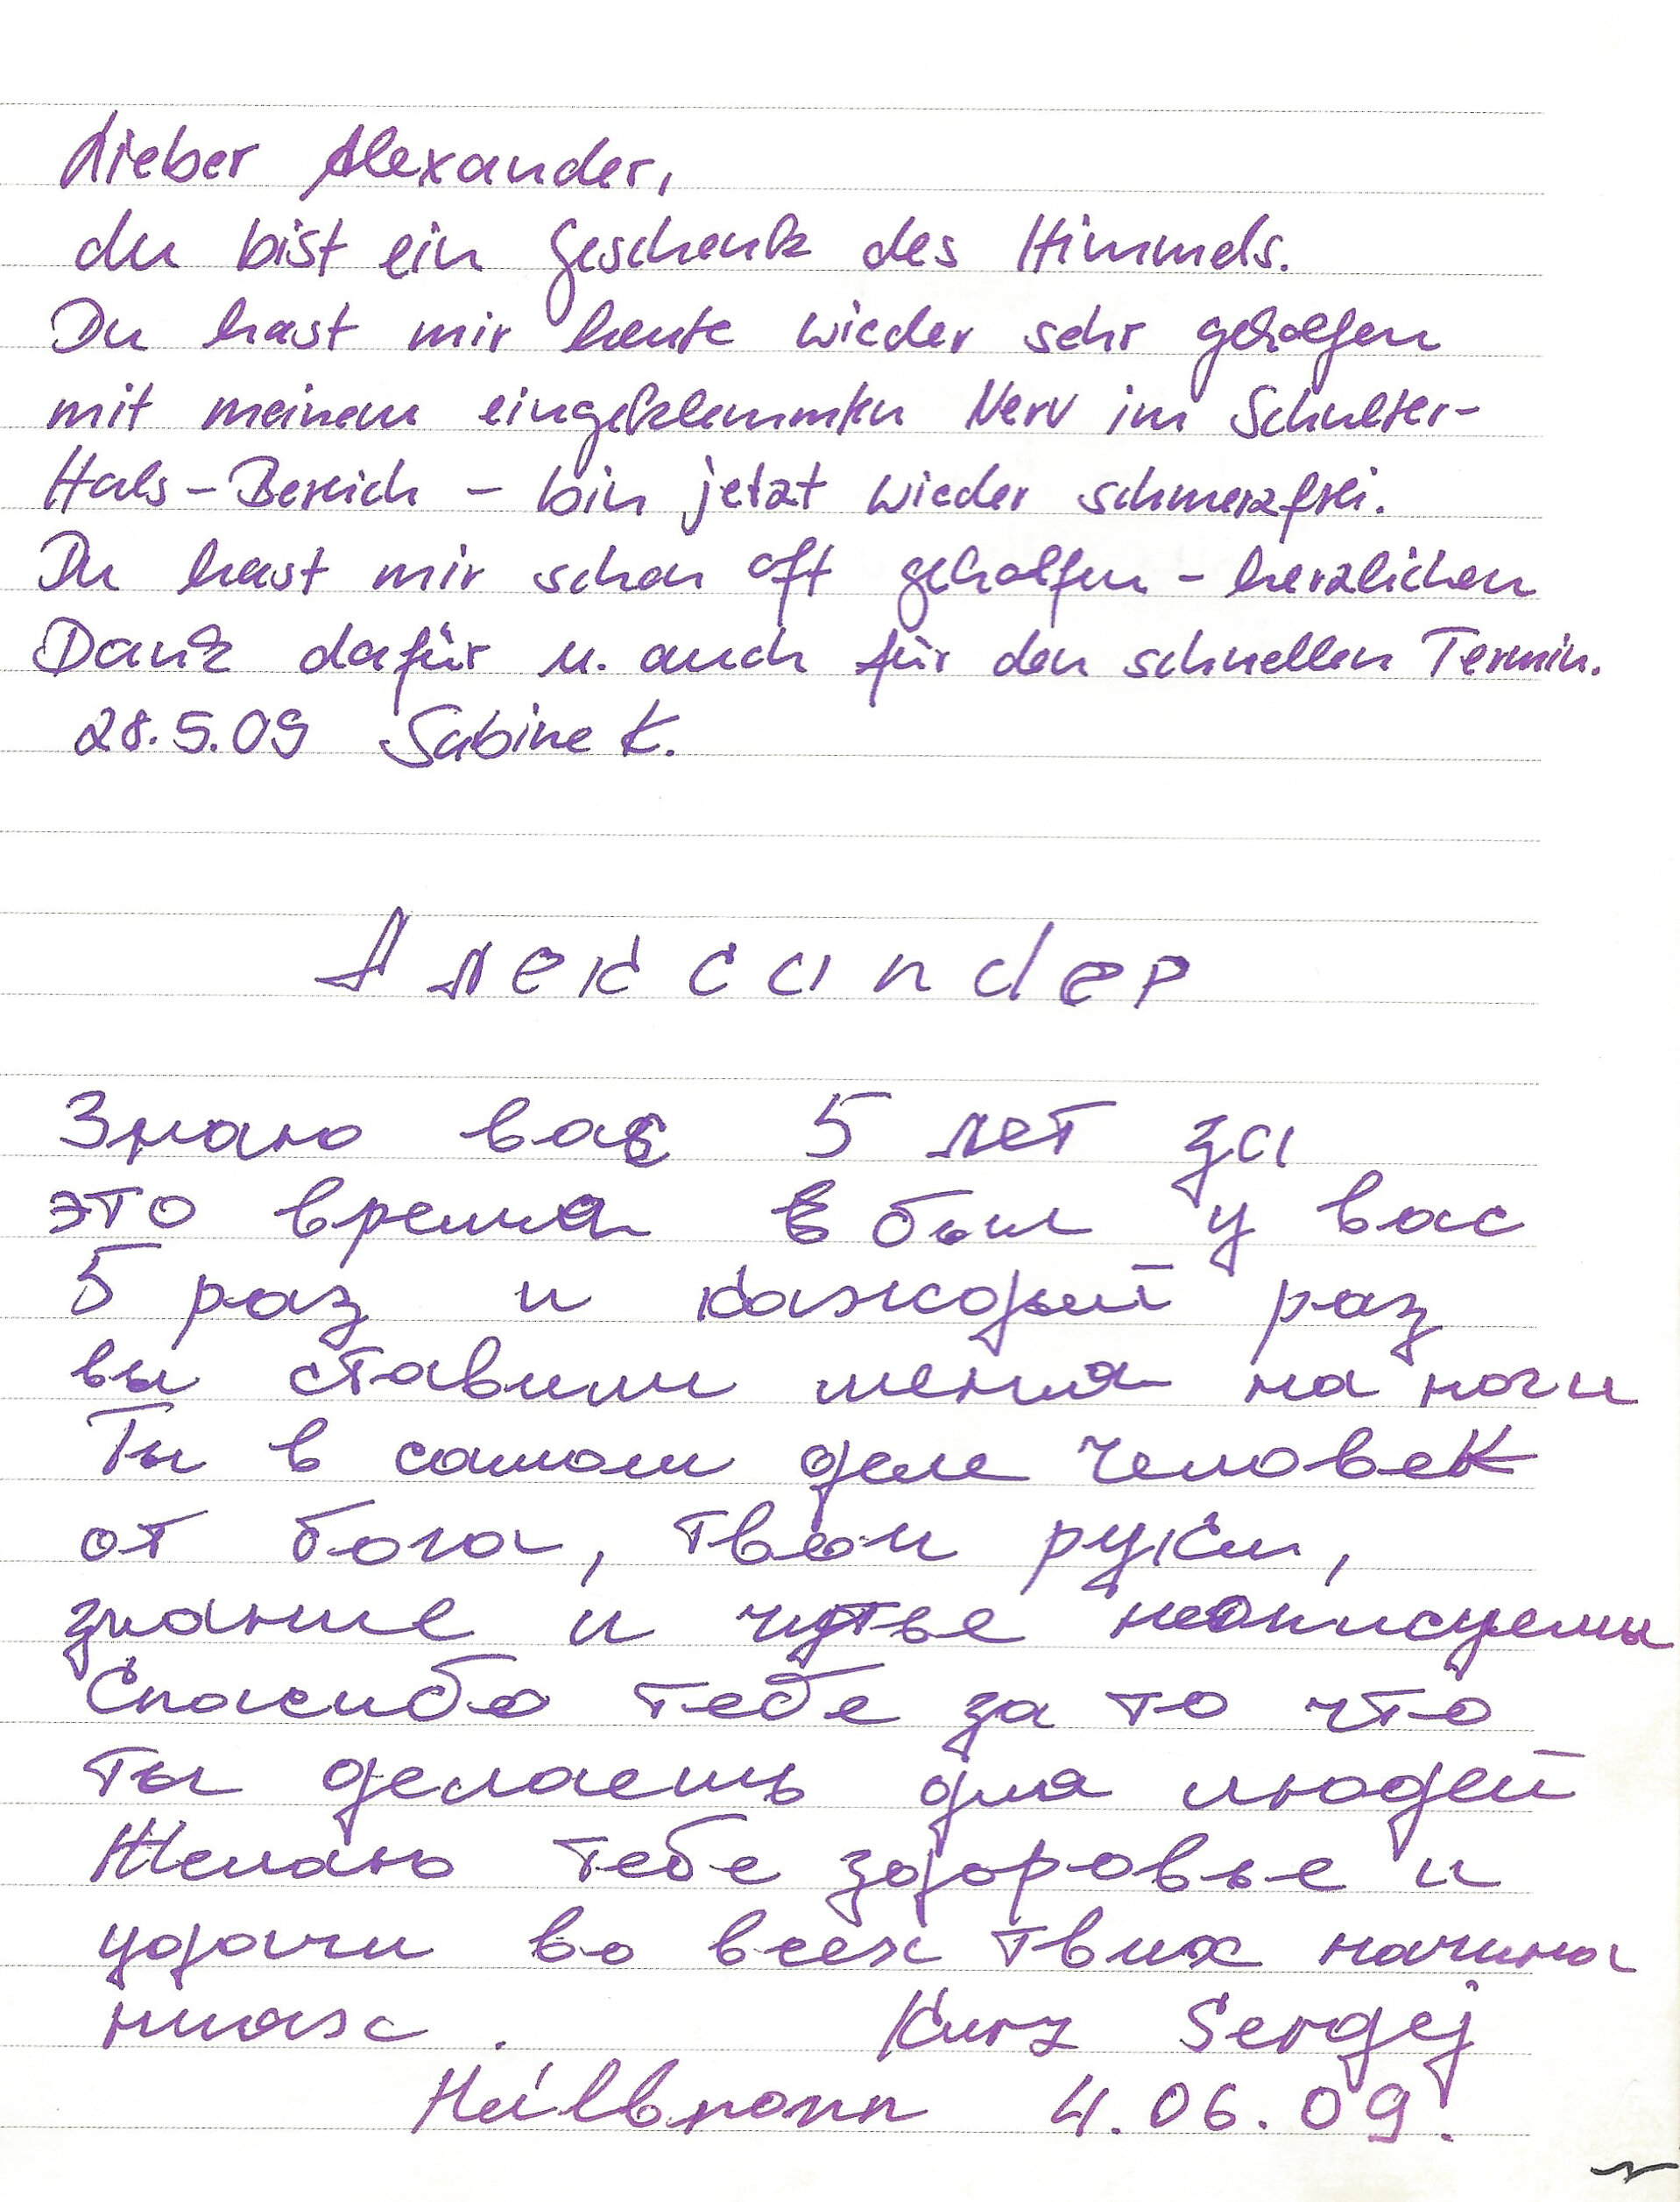 Lieber Alexander,
du bist ein Geschenk des Himmels.
Du hast mir heute wieder sehr geholfen
mit meinem eingeklemmten Nerv im Schulter-
Hals-Bereich - bin jetzt wieder schmerzfrei.
Du hast mir schon oft geholfen - herzlichen
Dank dafür u. auch für den schnellen Termin.
28.5.09 Sabine K.
Алексаnдер
Знаю вас 5 лет за
это время был у вас
5 раз и каждый раз
вы ставили меня на ноги
Ты в самом деле человек
от бога, твои руки,
знание и чутье неописуемы
Спасибо тебе за то что
ты делаешь для людей
Желаю тебе здоровье и
удачи во всех твих начина
ниях.     Kurz Sergej
Heilbronn 4.06.09.